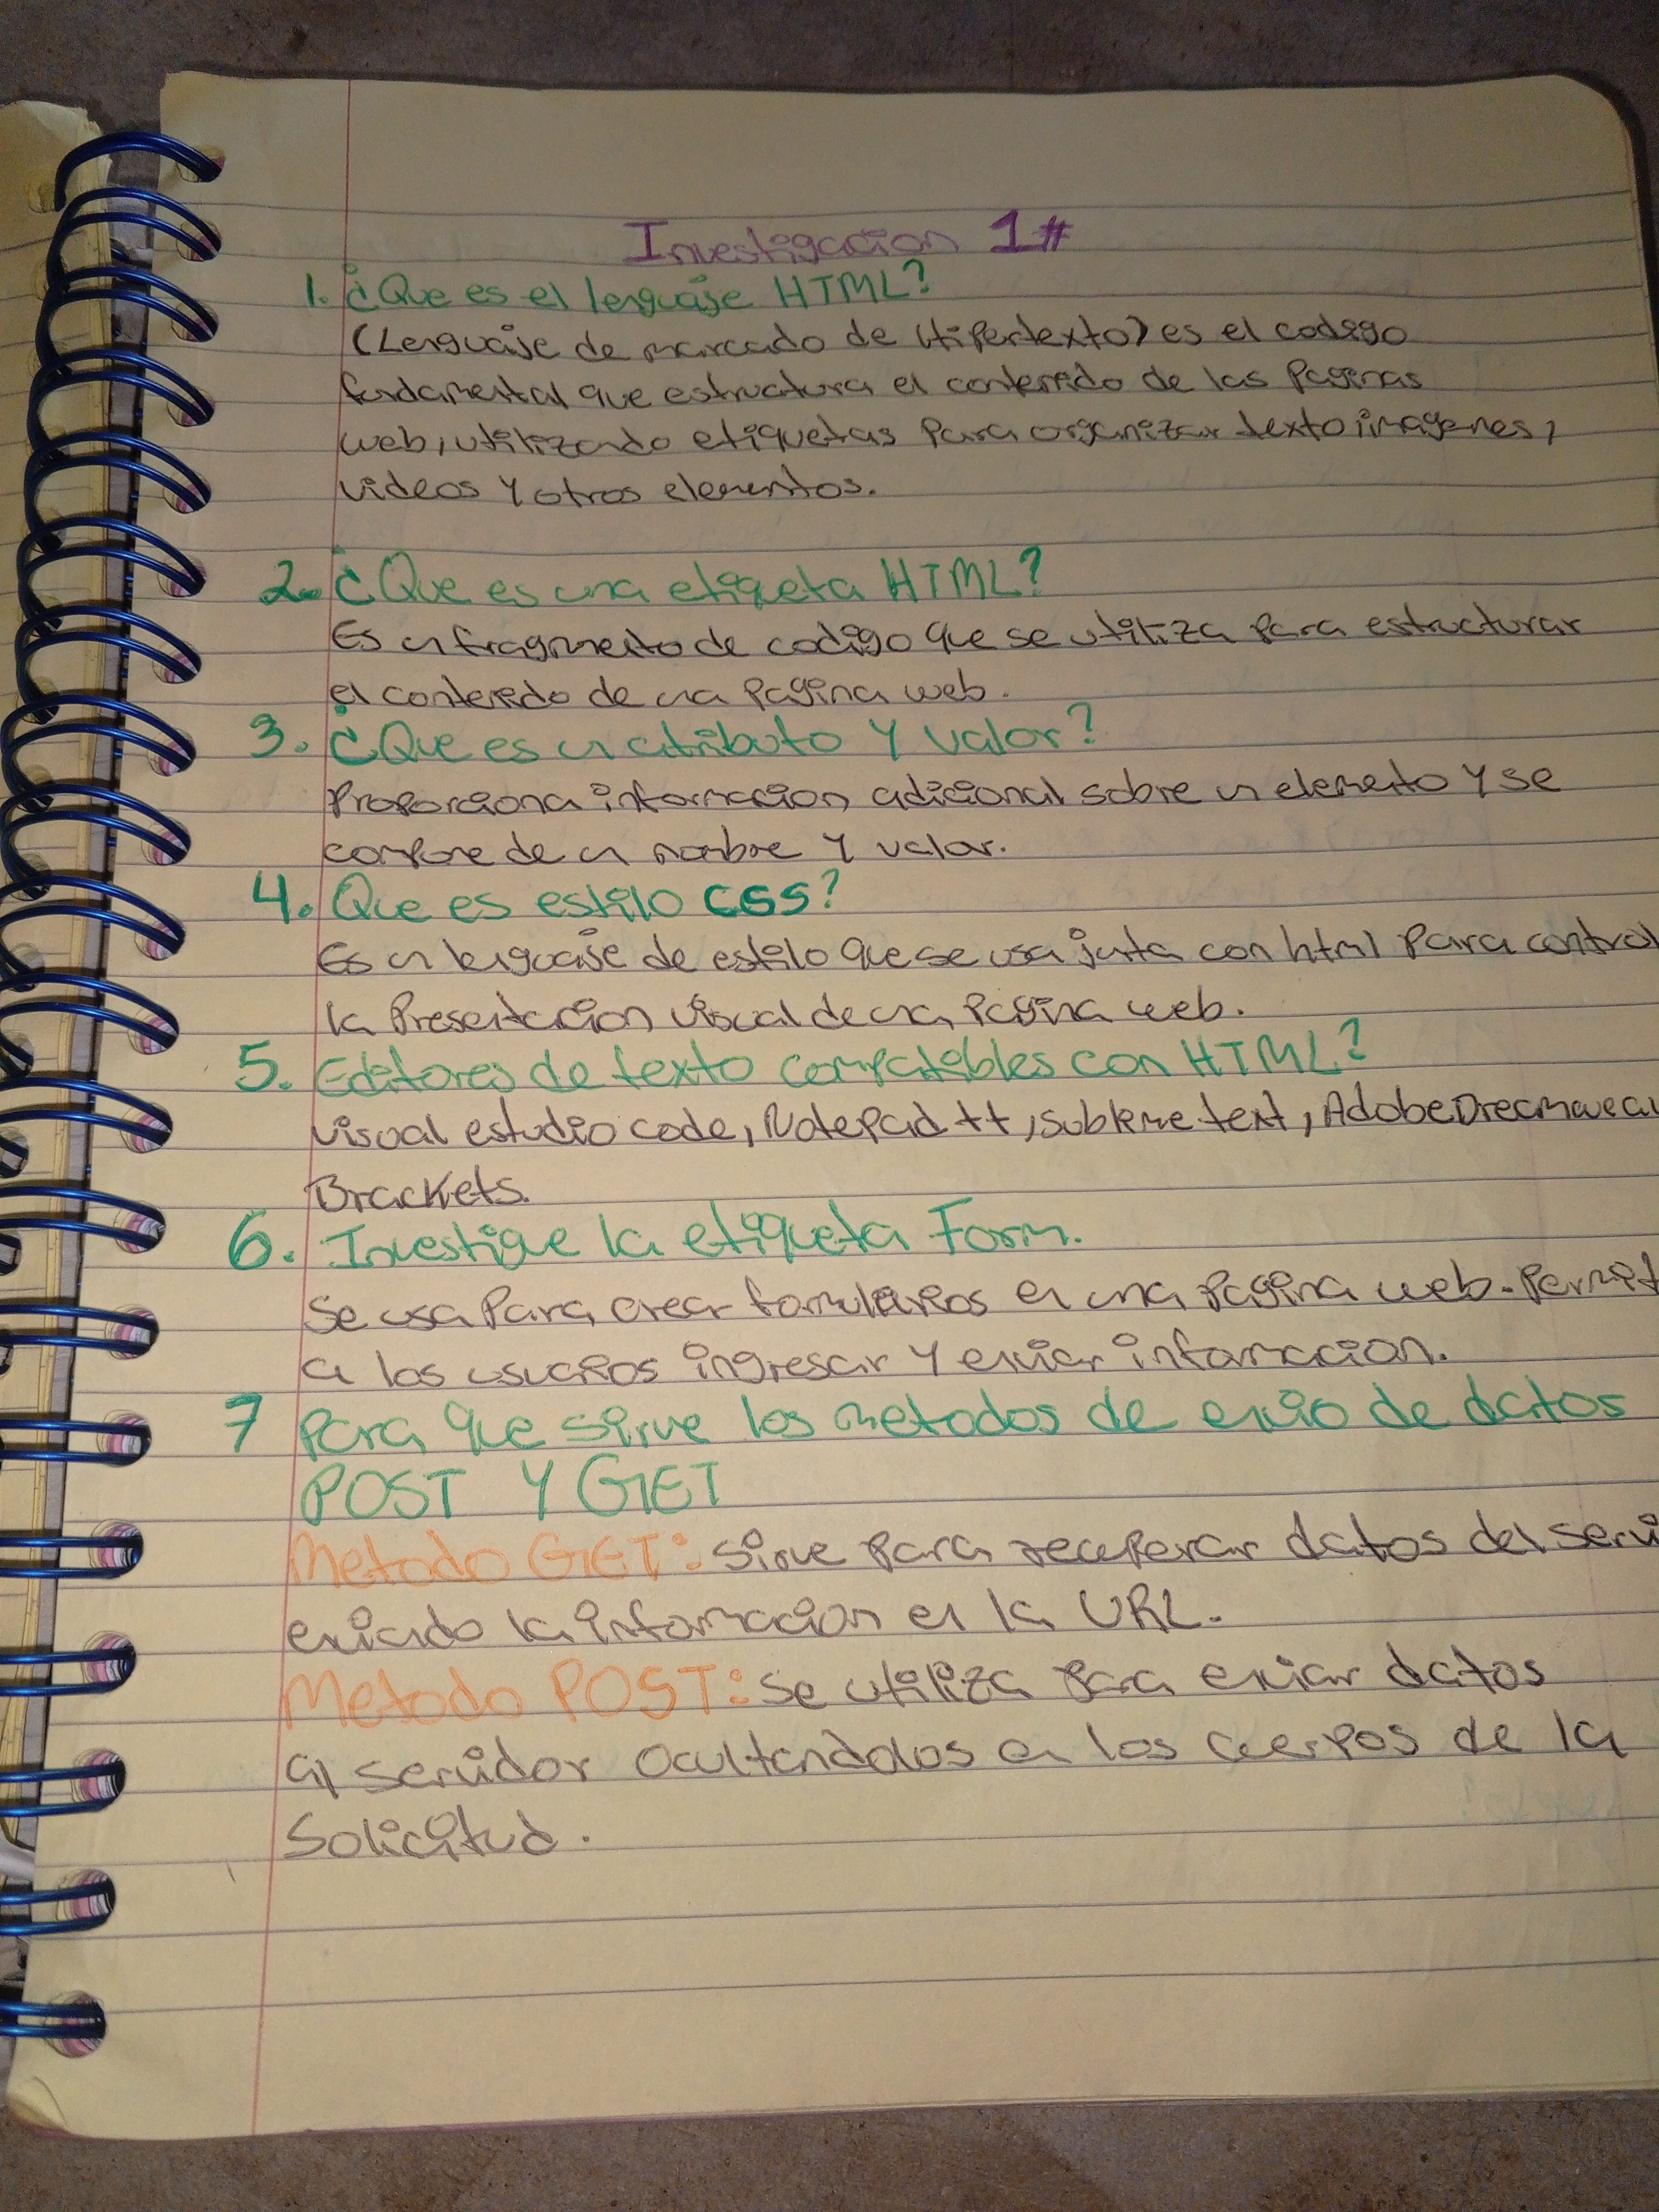 Investigacion 1#
1. ¿Que es el lenguaje HTML?
(Lenguaje de marcado de Hipertexto) es el codigo
fundamental que estructura el contenido de las Paginas
web, utilizando etiquetas Para organizar texto imagenes,
videos y otros elementos.
2. ¿Que es una etiqueta HTML?
Es un fragmento de codigo que se utiliza Para estructurar
el contenido de una Pagina web.
3. ¿Que es un atributo y valor?
Proporciona informacion adicional sobre un elemento y se
compone de un nombre y valor.
4. Que es estilo CSS?
Es un lenguaje de estilo que se usa junta con html Para control
la Presentacion visual de una Pagina web.
5. Editores de texto compatibles con HTML?
visual estudio code, NotePad ++, sublime text, Adobe Dreamwea
Brackets.
6. Investigue la etiqueta Form.
Se usa Para crear formularios en una Pagina web. Permit
a los usuarios ingresar y enviar informacion.
7 Para que sirve los metodos de envio de datos
POST Y GET
Metodo GET: sirve Para recuperar datos del servi
enviando la informacion en la URL.
Metodo POST: Se utiliza Para enviar datos
al servidor ocultandolos en los cuerpos de la
Solicitud.